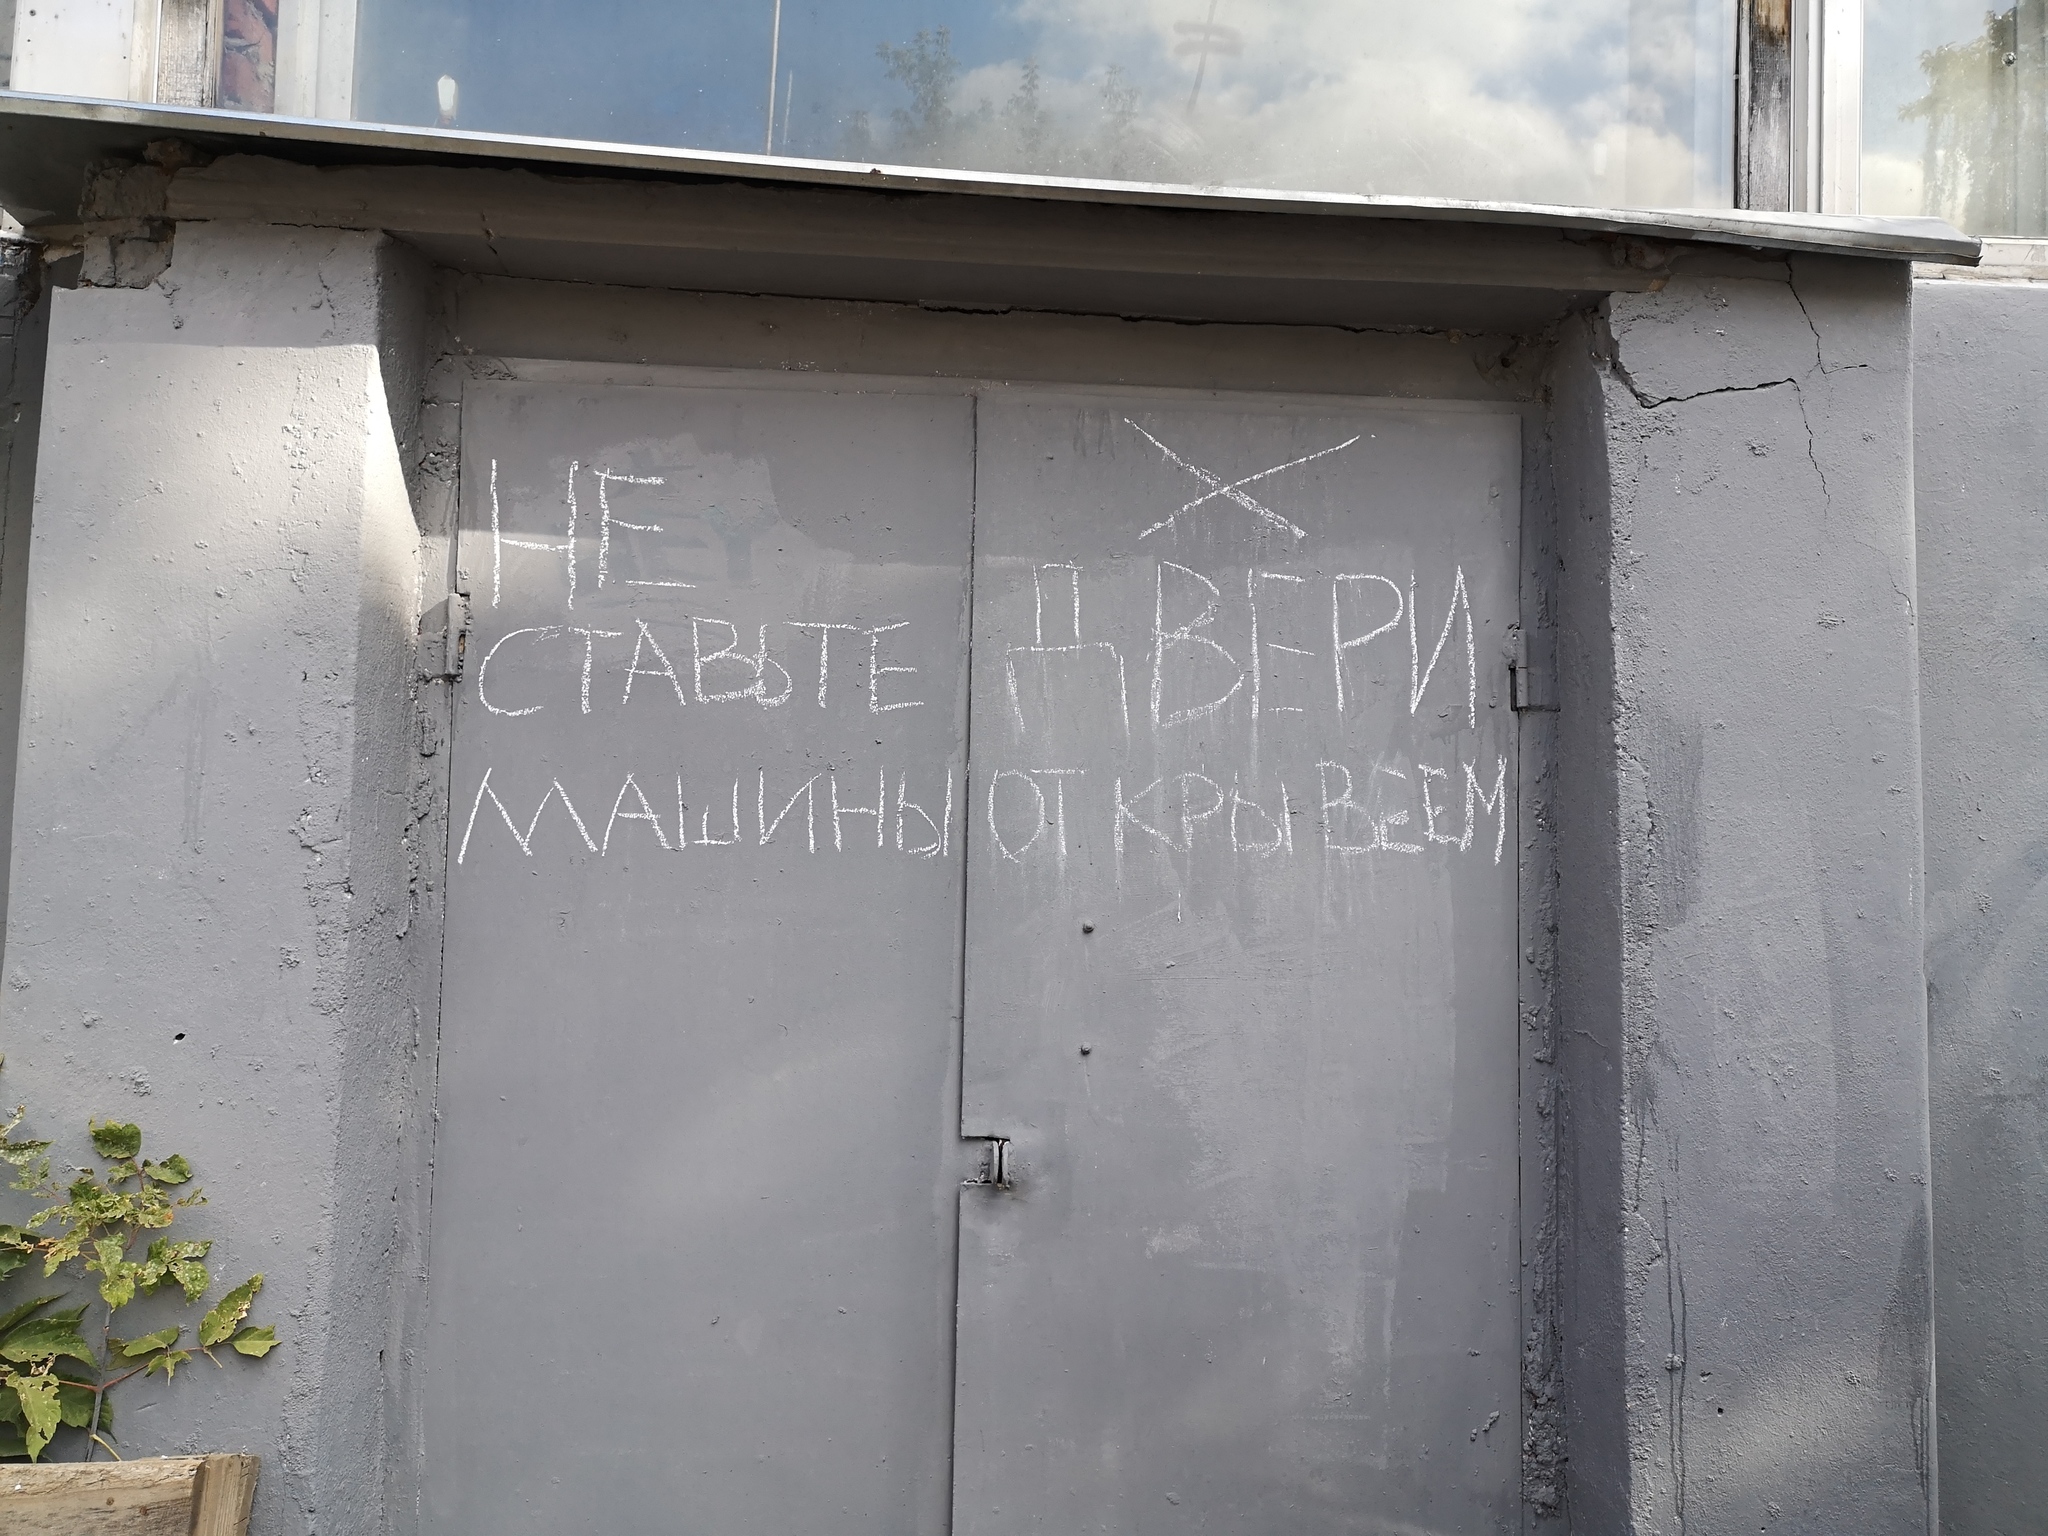 НЕ
СТАВЬТЕ
МАШИНЫ
Х
ДВЕРИ
ОТКРЫВЕЕМ